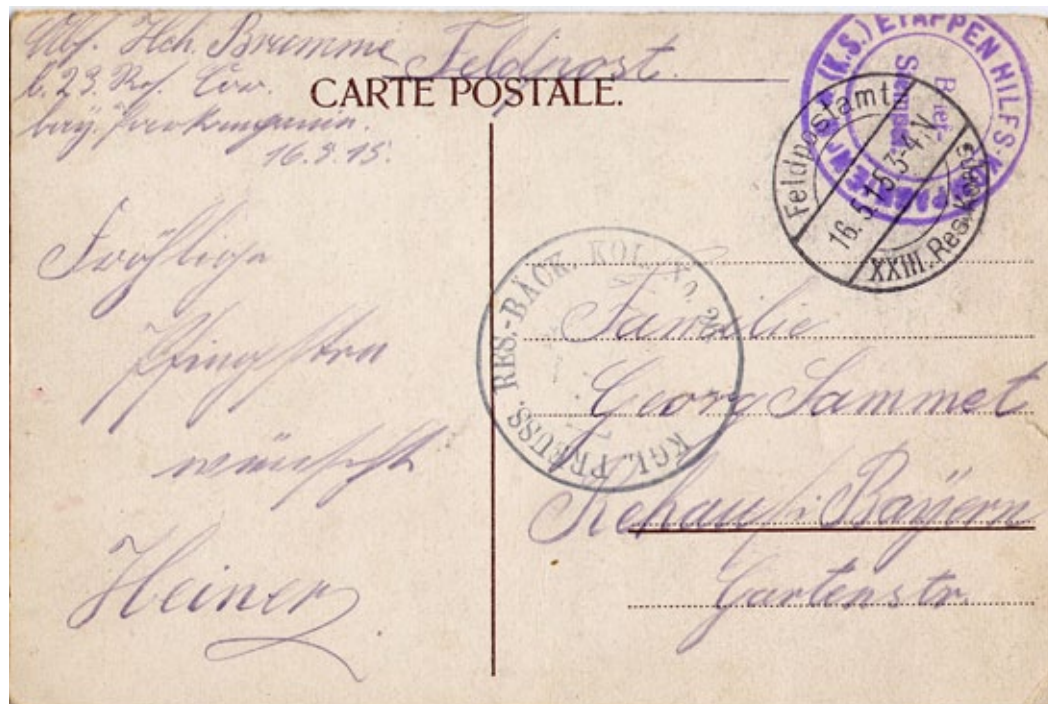 Abs. Hch. Bromme
b. 23. Res.
bay.
Feldpost.
CARTE POSTALE.
(K.S.) ETAPPEN HILFS
Brief-
Stempel
Feldpostamt
16.5.15 3-4 N
XXIII. Res. Korps
KGL. PREUSS. RES.-BÄCK. KOL. No.
Fröhliche
Pfingsten
wünscht
Heiner
Familie
Georg Sammet
Rehau i Bayern
Gartenstr.